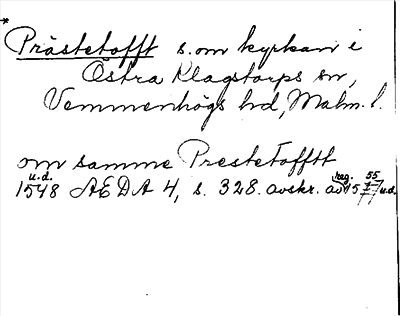 *
Prästetofft s. om kyrkan i
Östra Klagstorps sn,
Vemmenhögs hd, Malm. l.
om samme Prestetofftt
u.d. reg. 55
1548 AEDA 4, s. 328. avskr. av 15 77 u.d.